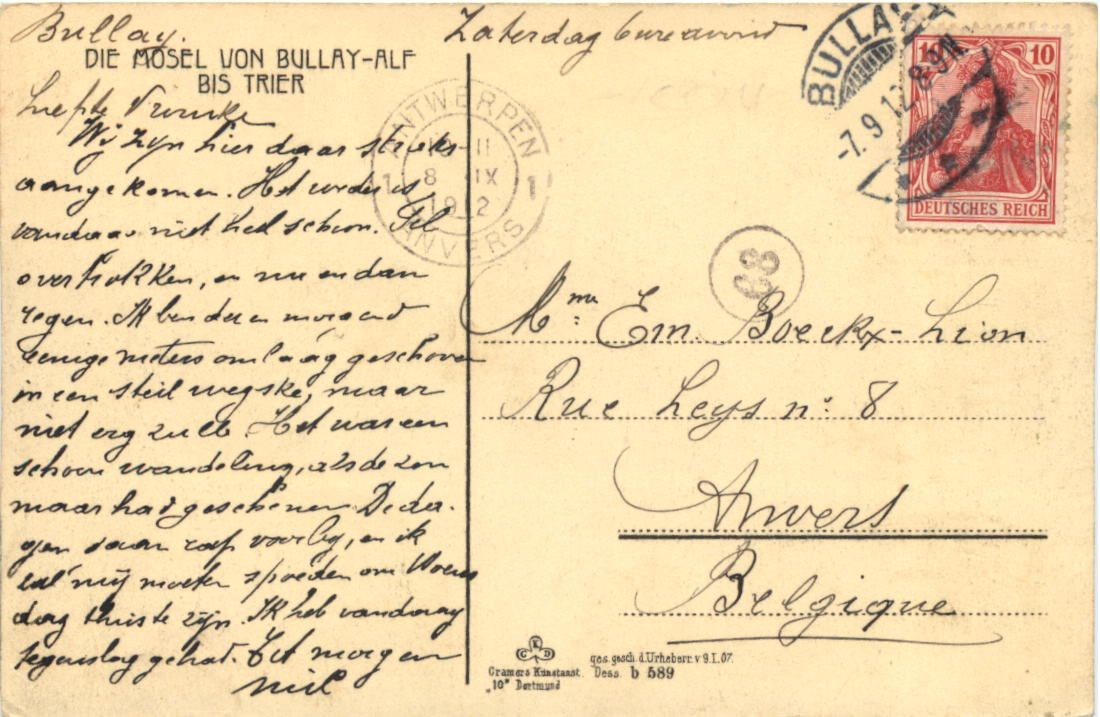 Bullay.
Zaterdag avond
DIE MOSEL VON BULLAY-ALF
BIS TRIER
Liefste Vrouwke
Wij zijn hier daar straks
aangekomen. Het weder is
vandaag niet heel schoon.
overtrokken, en nu en dan
regen. Ik ben dezen morgend
eenige meters omlaag geschoven
in een steil wegske, maar
niet erg zulle. Het was een
schoon wandeling, als de zon
maar had geschenen. De da-
gen gaan rap voorbij, en ik
zal mij moeten spoeden om Woens
dag thuis te zijn. Ik heb vandaag
tegenslag gehad. Tot morgen
BULLAY
-7.9.12.8-9N
10 10
DEUTSCHES REICH
ANTWERPEN
11
1 8 IX 1
1912
ANVERS
68
Mme: Em. Boeckx-Lion
Rue Leys n° 8
Anvers
Belgique
K
G D
Cramers Kunstanst.
"10" Dortmund
ges. gesch. d. Urheberr. v 9.I.07.
Dess. b 589